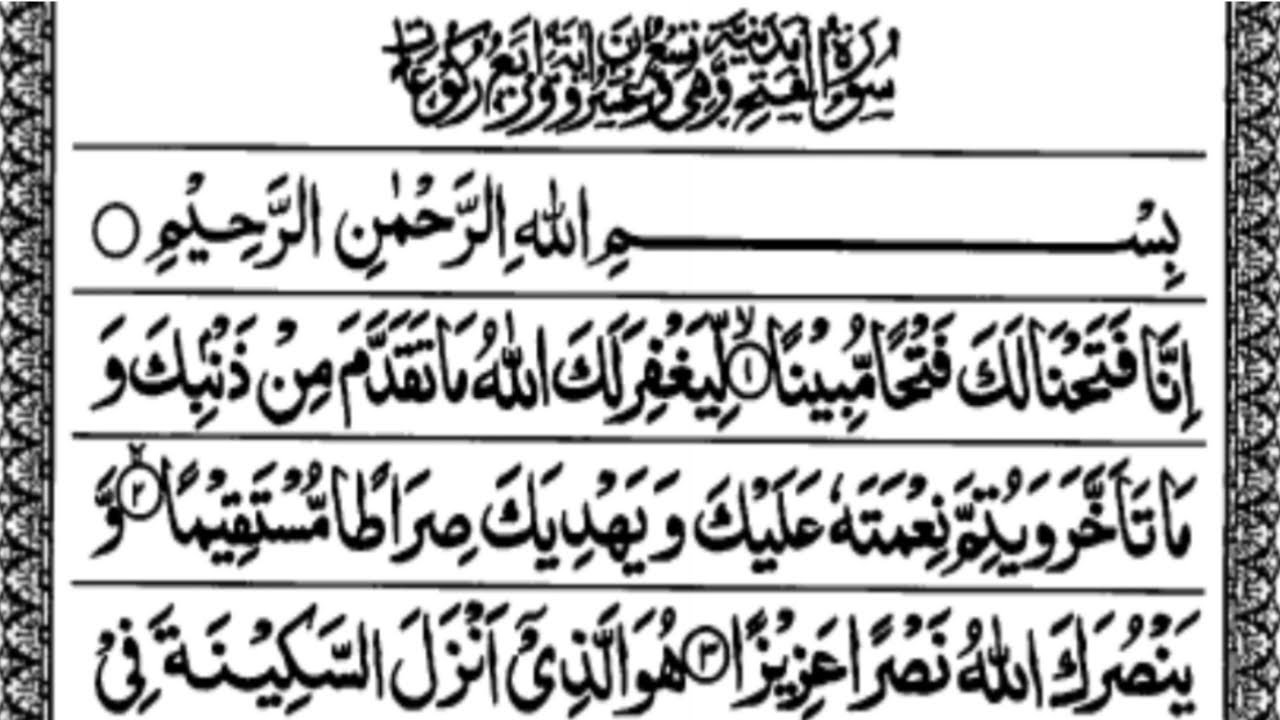 سُوْرَةُ الْفَتْحِ مَدَنِيَّةٌ وَّهِيَ تِسْعٌ وَّعِشْرُوْنَ اٰيَةً وَّاَرْبَعُ رُكُوْعَاتٍ
بِسْمِ اللّٰهِ الرَّحْمٰنِ الرَّحِيْمِ ○
اِنَّا فَتَحْنَا لَكَ فَتْحًا مُّبِيْنًا ۙ﴿۱﴾ لِّيَغْفِرَ لَكَ اللّٰهُ مَا تَقَدَّمَ مِنْ ذَنْۢبِكَ وَ
مَا تَاَخَّرَ وَ يُتِمَّ نِعْمَتَهٗ عَلَيْكَ وَ يَهْدِيَكَ صِرَاطًا مُّسْتَقِيْمًا ۙ﴿۲﴾ وَّ
يَنْصُرَكَ اللّٰهُ نَصْرًا عَزِيْزًا ﴿۳﴾ هُوَ الَّذِىْۤ اَنْزَلَ السَّكِيْنَةَ فِىْ